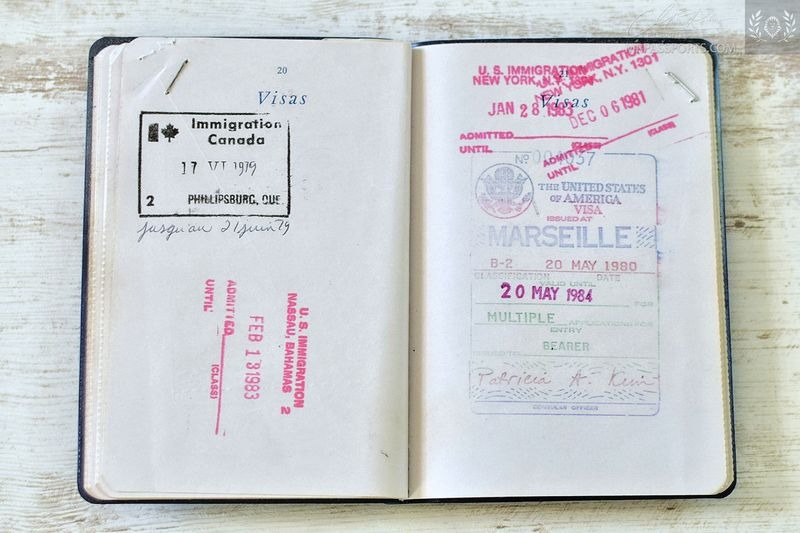 20
Visas
Immigration
Canada
17 VI 1979
2 PHILLIPSBURG, QUE.
jusqu'au 21 juin 79
U. S. IMMIGRATION
NASSAU, BAHAMAS 2
FEB 13 1983
ADMITTED
(CLASS)
UNTIL
21
Visas
U. S. IMMIGRATION
NEW YORK, N.Y.
JAN 28 1983
ADMITTED
UNTIL
U.S. IMMIGRATION
NEW YORK, N.Y. 1301
DEC 06 1981
ADMITTED
(CLASS)
UNTIL
No
THE UNITED STATES
OF AMERICA
VISA
ISSUED AT
MARSEILLE
B-2 20 MAY 1980
CLASSIFICATION DATE
VALID UNTIL
20 MAY 1984
FOR
MULTIPLE APPLICATIONS FOR
ENTRY
BEARER
Patricia A.
CONSULAR OFFICER
PASSPORTS.COM